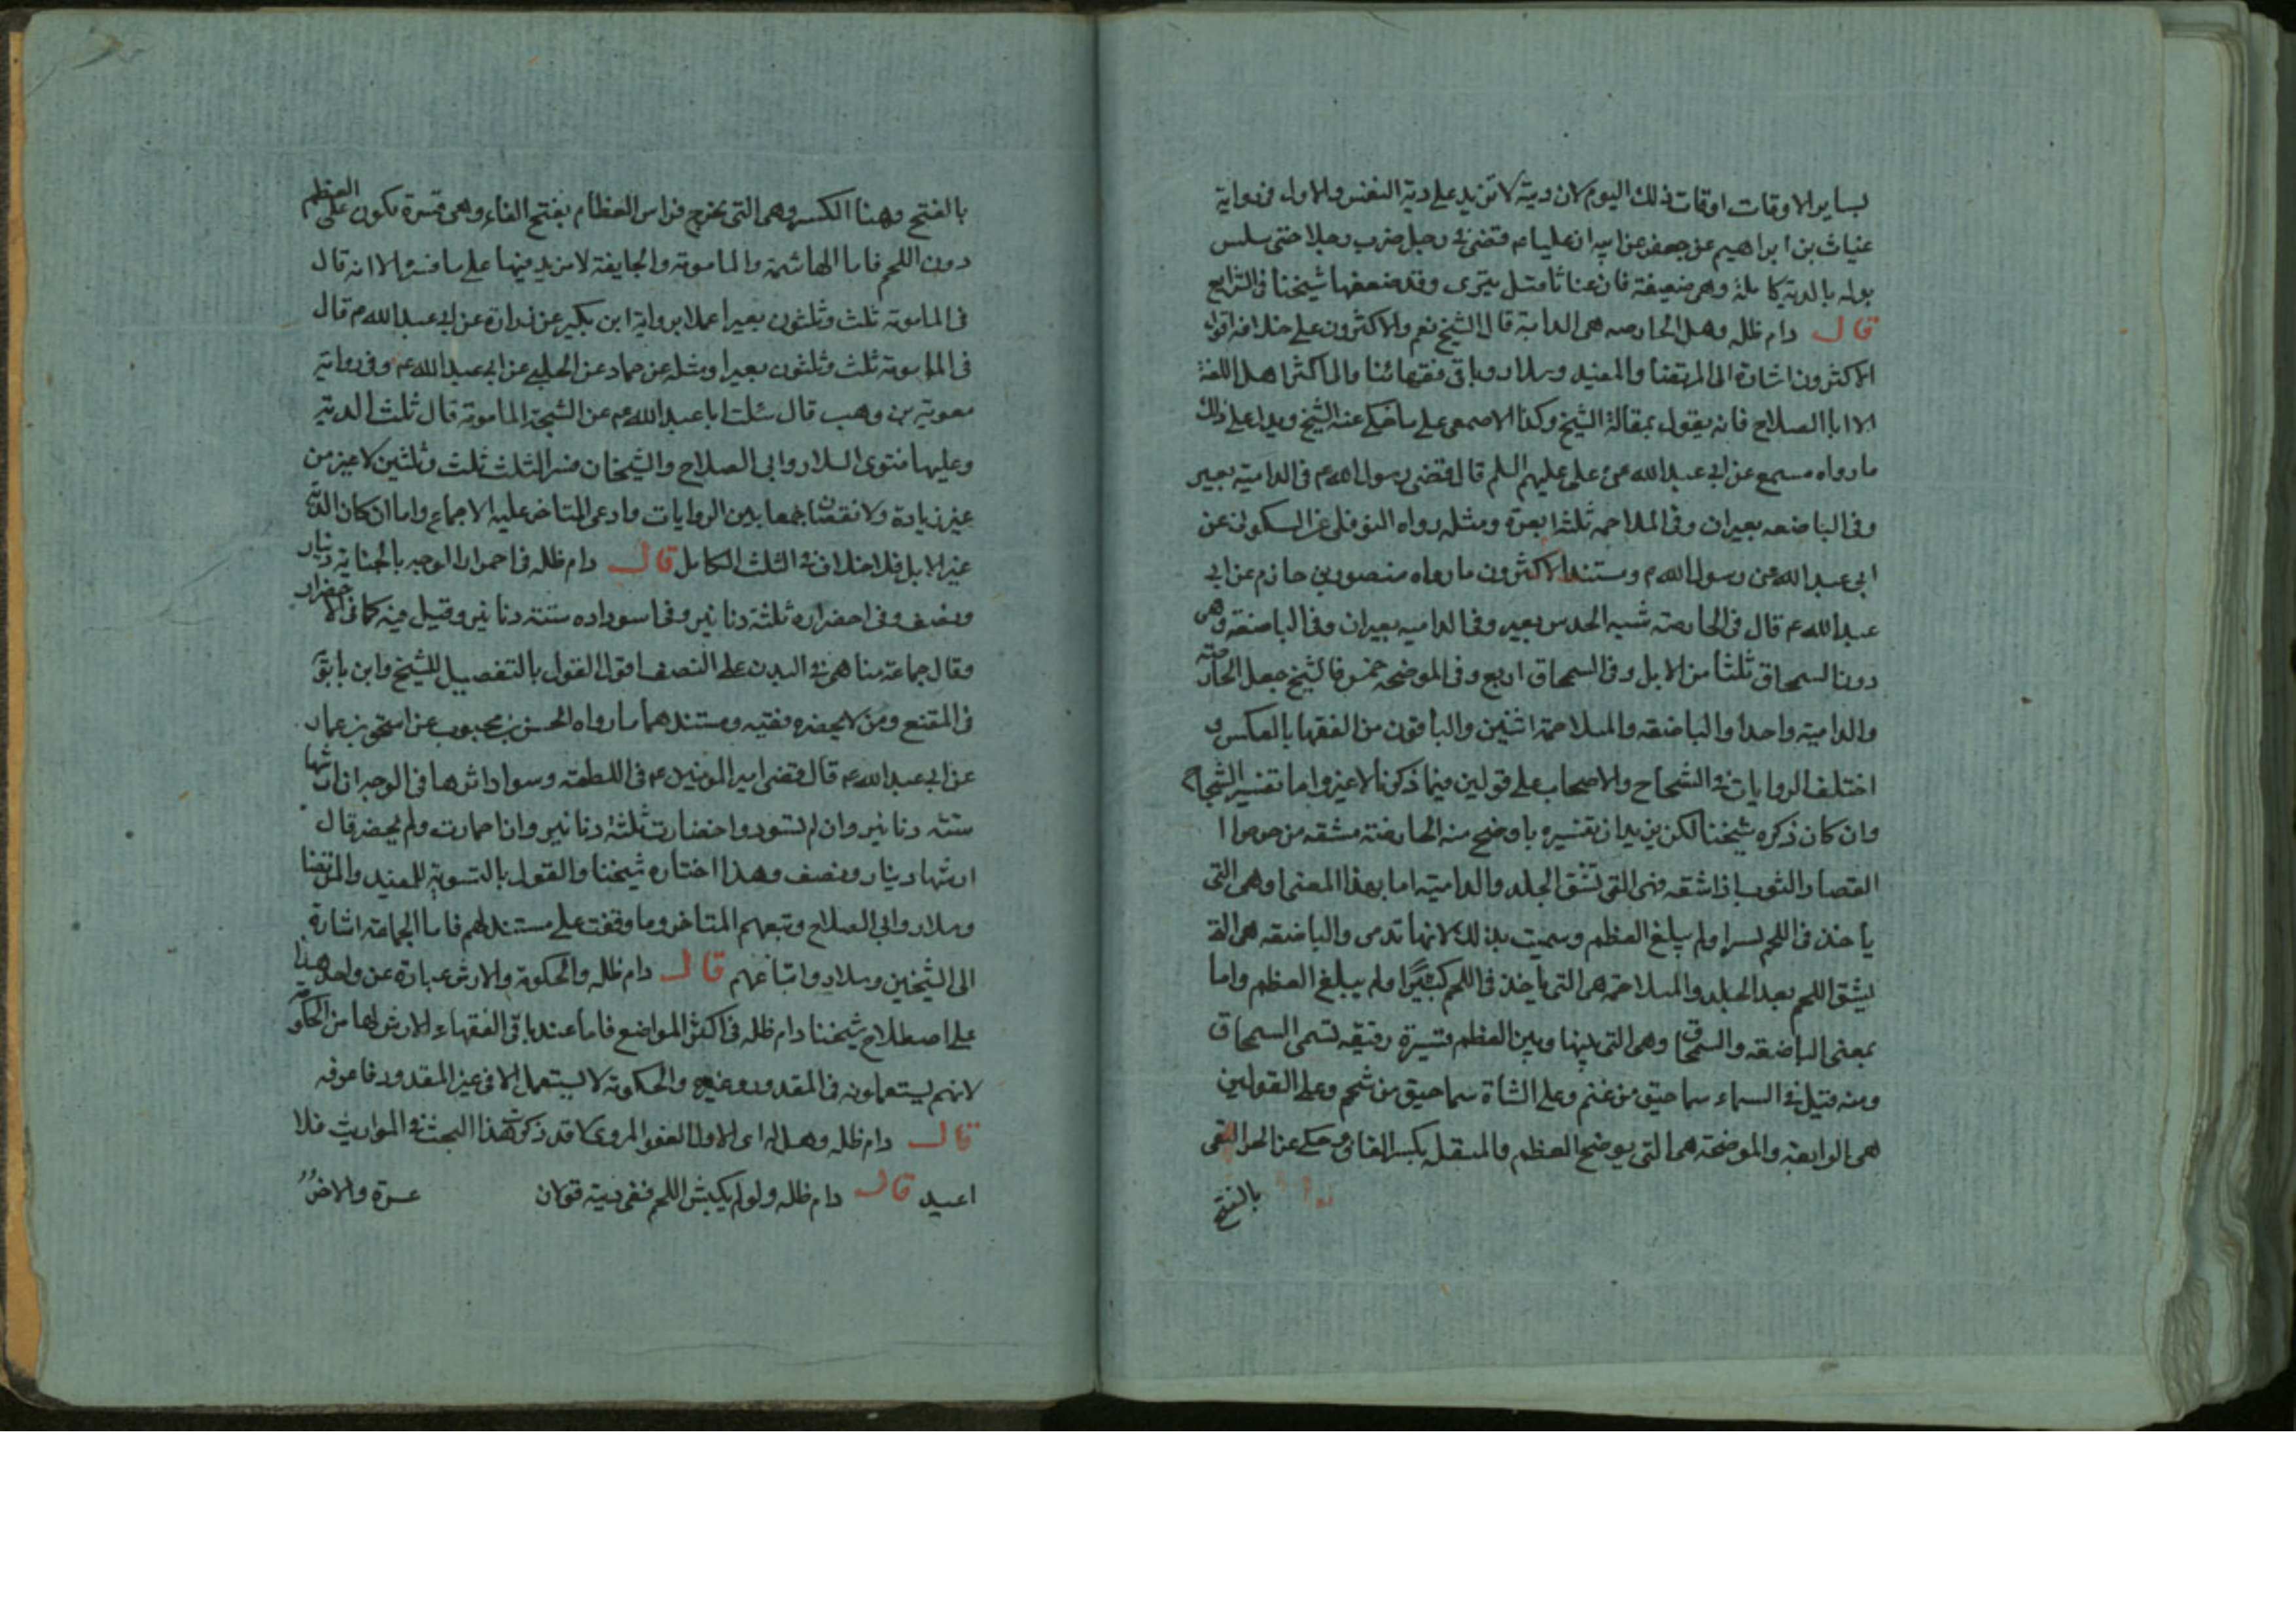 لساير الاوقات اوقات ذلك اليوم لان دية لا تزيد على دية النفس والاول في رواية
غياث بن ابراهيم عن جعفر عن ابيه ان عليا م قضى في رجل ضرب رجلا حتى سلس
بوله بالدية كاملة وهى ضعيفة فان غياثا بتري وقد ضعفها شيخنا في الشرايع
قال دام ظله وهل الحارصه هى الدامية قال الشيخ نعم والاكثرون على خلافه اقول
الاكثرون اشارة الى المرتضا والمفيد وسلار وباقى فقهائنا والى اكثر اهل اللغة
الا ابا الصلاح فانه يقول بمقالة الشيخ وكذا الاصمعى على ما حكى عنه الشيخ ويدل على ذلك
ما رواه مسمع عن ابى عبد الله عن على عليهم السلم قال قضى رسول الله م في الدامية بعير
وفى الباضعه بعيران وفى المتلاحمه ثلثة ابعرة ومثله رواه النوفلى عن السكونى عن
ابى عبد الله عن رسول الله م ومستند الاكثرون ما رواه منصور بن حازم عن ابى
عبد الله عم قال في الحارصة شبه الخدش بعير وفى الداميه بعيران وفى الباضعة وهى
دون السمحاق ثلثا من الابل وفى السمحاق اربع وفى الموضحه خمس فالشيخ جعل الحارصة
والدامية واحدا والباضعه والمتلاحمة اثنين والباقون من الفقها بالعكس و
اختلف الروايات في الشجاج والاصحاب على قولين فيما ذكرنا لاغير واما تفسير الشجاج
وان كان ذكره شيخنا لكن نريد ان تفسيره باوضح منه الحارصة مشقه من حرص
القصار الثوب اذا شقه فهى التى تشق الجلد والدامية اما بهذا المعنى او هى التى
ياخذ في اللحم يسرا ولم يبلغ العظم وسميت بذلك لانها تدمى والباضعه هى التى
يشق اللحم بعد الجلد والمتلاحمة هى التى ياخذ في اللحم كثيرا ولم يبلغ العظم واما
بمعنى الباضعه والسمحاق وهى التى بينها وبين العظم قشيرة رقيقه تسمى السمحاق
ومنه قيل في السماء سماحيق من غنم وعلى الشاة سماحيق من شحم وعلى القولين
هى الرابعة والموضحة هى التى يوضح العظم والمنقلة بكسر القاف وحكى عن
بالفتح
بالفتح وهنا الكسر وهى التى يخرج فراس العظام بفتح الفاء وهى قشرة يكون على العظم
دون اللحم فاما الهاشمة والمامومة والجايفة لا مزيد فيها على ما فسره الا انه قال
في المامومة ثلث وثلثون بعيرا عملا برواية ابن بكير عن زرارة عن ابى عبد الله م قال
في المامومة ثلث وثلثون بعيرا ومثله عن حماد عن الحلبى عن ابى عبد الله عم وفى رواية
معوية بن وهب قال سئلت ابا عبد الله عم عن الشجة المامومة قال ثلث الدية
وعليها فتوى السلار وابى الصلاح والشيخان فسرا الثلث ثلث وثلثين لاغير من
غير زيادة ولا نقصان جمعا بين الروايات وادعى المتاخر عليه الاجماع واما ان كان الدية
غير الابل فلا خلاف في الثلث الكامل قال دام ظله في احمرار الوجه بالجناية دينار
ونصف وفى اخضراره ثلثة دنانير وفى اسوداده ستة دنانير وقيل فيه كما فى الاخضرار
وقال جماعة منا هى في البدن على النصف اقول القول بالتفصيل للشيخ وابن بابويه
في المقنع ومن لا يحضره فقيه ومستندهما ما رواه الحسن بن محبوب عن اسحق بن عمار
عن ابى عبد الله عم قال قضى امير المومنين عم في اللطمة وسواد اثرها في الوجه ان ارشها
ستة دنانير وان لم تسود واخضارت ثلثة دنانير وان احمارت ولم يخضر قال
ارشها دينار ونصف وهذا اختاره شيخنا والقول بالتسوية للمفيد والمرتضا
وسلار وابى الصلاح وتبعهم المتاخر وما وقفت على مستند لهم فاما الجماعة اشارة
الى الشيخين وسلار واتباعهم قال دام ظله والحكومة والارش عبارة عن واحد هذا
على اصطلاح شيخنا دام ظله في اكثر المواضع فاما عند باقى الفقهاء الارش لها من الحكومة
لانهم يستعملونه في المقدور وغيره والحكومة لا يستعمل الا في غير المقدور فاعرفه
قال دام ظله وهل له اى الاول العفو المروى لا قد ذكرت هذا البحث في المواريث فلا
اعيد قال دام ظله ولو لم يكبش اللحم ففى ديته قولان غرة والاخر